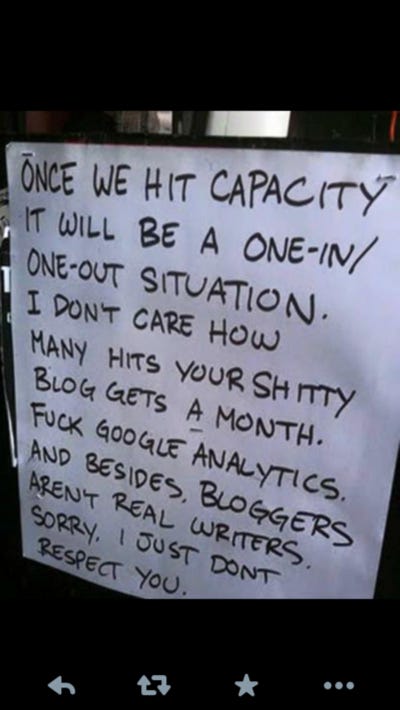 ONCE WE HIT CAPACITY
IT WILL BE A ONE-IN/
ONE-OUT SITUATION.
I DON'T CARE HOW
MANY HITS YOUR SHITTY
BLOG GETS A MONTH.
FUCK GOOGLE ANALYTICS.
AND BESIDES, BLOGGERS
AREN'T REAL WRITERS.
SORRY, I JUST DONT
RESPECT YOU.